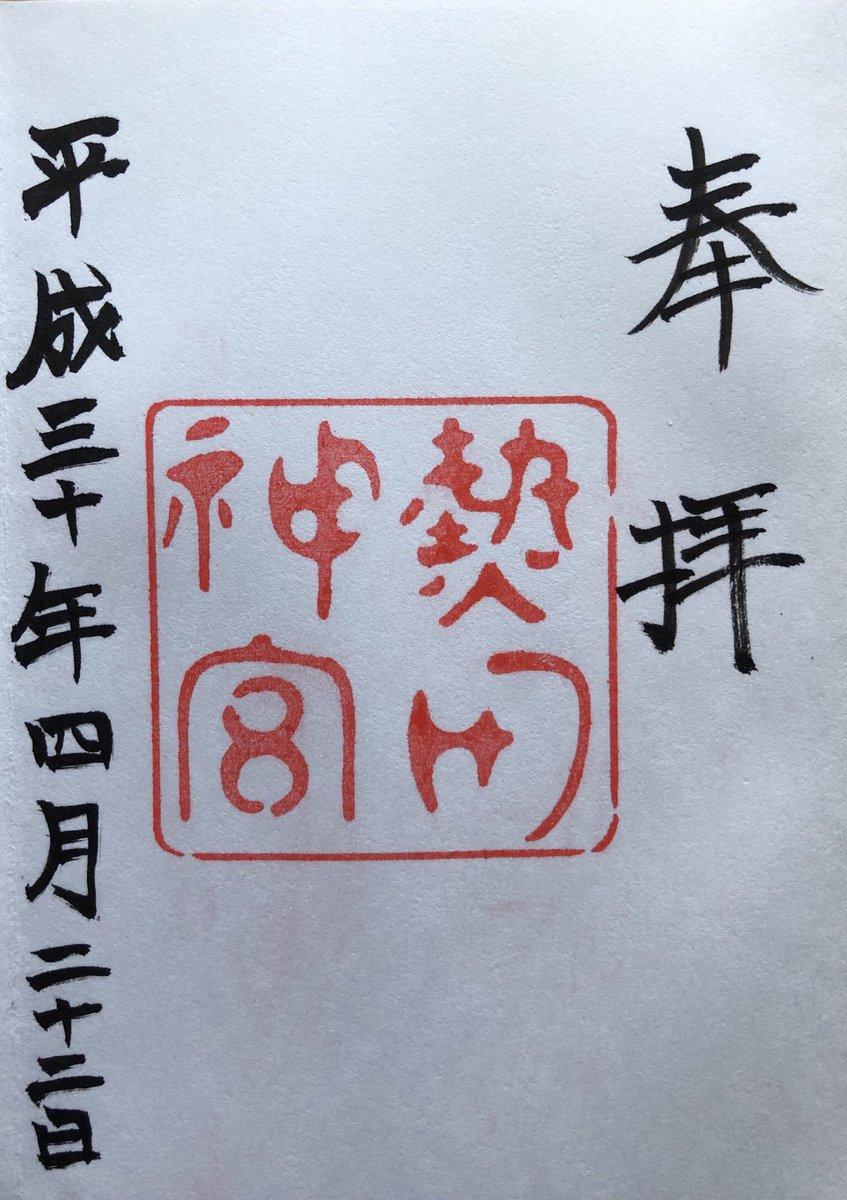 奉拝
熱田
神宮
平成三十年四月二十二日